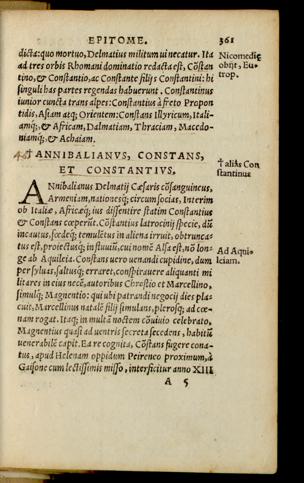 EPITOME. 361
dicta: quo mortuo, Delmatius militum ui necatur. Ita
ad tres orbis Rhomani dominatio redacta est, Cõstan
tino, & Constantio, ac Constante filijs Constantini: hi
singuli has partes regendas habuerunt. Constantinus
iunior cuncta trans alpes: Constantius à freto Propon
tidis, Asiam atq; Orientem: Constans Illyricum, Itali-
amq;, & Africam, Dalmatiam, Thraciam, Macedo-
niamq;, & Achaiam.
Nicomedię
obijt, Eu-
trop.
44 † ANNIBALIANVS, CONSTANS,
ET CONSTANTIVS.
† aliâs Con
stantinus
ANnibalianus Delmatij Cæsaris cõsanguineus,
Armeniam, nationesq; circumsocias, Interim
ob Italiæ, Africæq; ius dissentire statim Constantius
& Constans cœperũt. Cõstantius latrocinij specie, dũ
incautus, fœdeq; temulẽtus in aliena irruit, obtrunca-
tus est, proiectusq; in fluuiũ, cui nomẽ Alsa est, nõ lon-
ge ab Aquileia. Constans uero uenandi cupidine, dum
per syluas, saltusq; erraret, conspirauere aliquanti mi
litares in eius necẽ, autoribus Chrestio et Marcellino,
simulq; Magnentio: qui ubi patrandi negocij dies pla-
cuit, Marcellinus natalẽ filij simulans, plerosq; ad cœ-
nam rogat. Itaq; in multã noctem cõuiuio celebrato,
Magnentius quasi ad uentris secreta secedens, habitũ
uenerabilẽ capit. Ea re cognita, Cõstans fugere cona-
tus, apud Helenam oppidum Peireneo proximum, à
Gaisone cum lectissimis misso, interficitur anno XIII
Ad Aqui-
leiam.
A 5